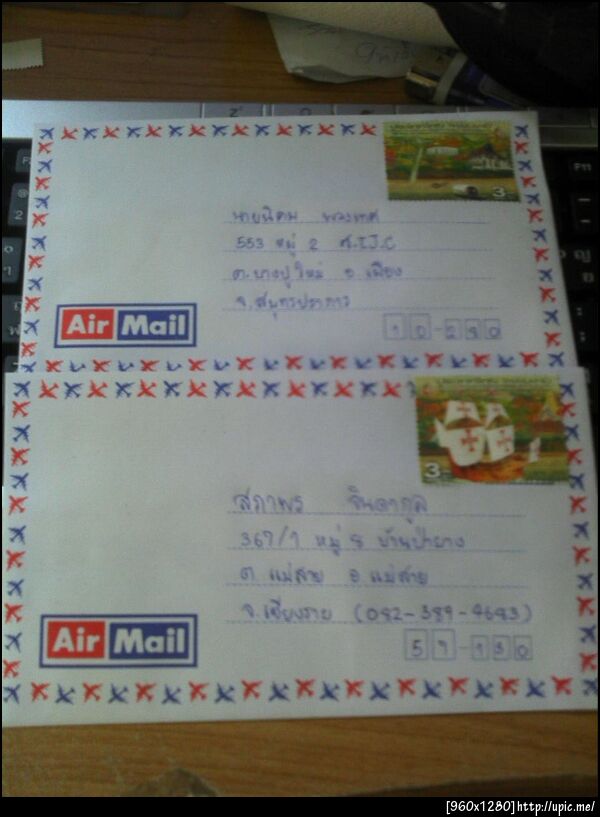 3
นายนิคม พวงเกศ
553 หมู่ 2 ศ.T.J.C
ต.บางปูใหม่ อ.เมือง
จ.สมุทรปราการ
10-280
Air Mail
3
สุภาพร จินดากูล
367/1 หมู่ 5 บ้านป่ายาง
ต.แม่สาย อ.แม่สาย
จ.เชียงราย (082-389-4643)
57-130
Air Mail
[960x1280]http://upic.me/